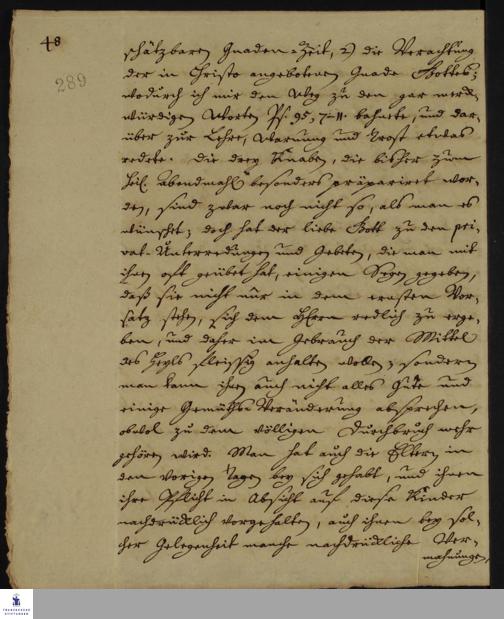 48
289
schätzbaren Gnaden-Zeit, 2) die Verachtung
der in Christo angebotenen Gnade Gottes;
wodurch ich mir den Weg zu den gar merk-
würdigen Worten Ps. 95, 7-11. bahnete, und dar-
über zur Lehre, Warnung und Trost etwas
redete. Die drey Knaben, die bisher zum
heil. Abendmahl besonders präpariret wor-
den, sind zwar noch nicht so, als man es
wünschet; doch hat der liebe Gott zu den pri-
vat-Unterredungen und Gebeten, die man mit
ihnen oft geübet hat, einigen Segen gegeben,
daß sie nicht nur in dem ernsten Vor-
satz stehen, sich dem HErrn redlich zu erge-
ben, und daher im Gebrauch der Mittel
des Heyls fleissig anhalten wollen; sondern
man kann ihnen auch nicht alles Gute und
einige Gemüths-Veränderung absprechen,
obwol zu dem völligen Durchbruch mehr
gehören wird. Man hat auch die Eltern in
den vorigen Tagen bey sich gehabt, und ihnen
ihre Pflicht in Absicht auf diese Kinder
nachdrücklich vorgehalten, auch ihnen bey sol-
cher Gelegenheit manche nachdrückliche Ver-
mahnungen,
FRANCKESCHE
STIFTUNGEN